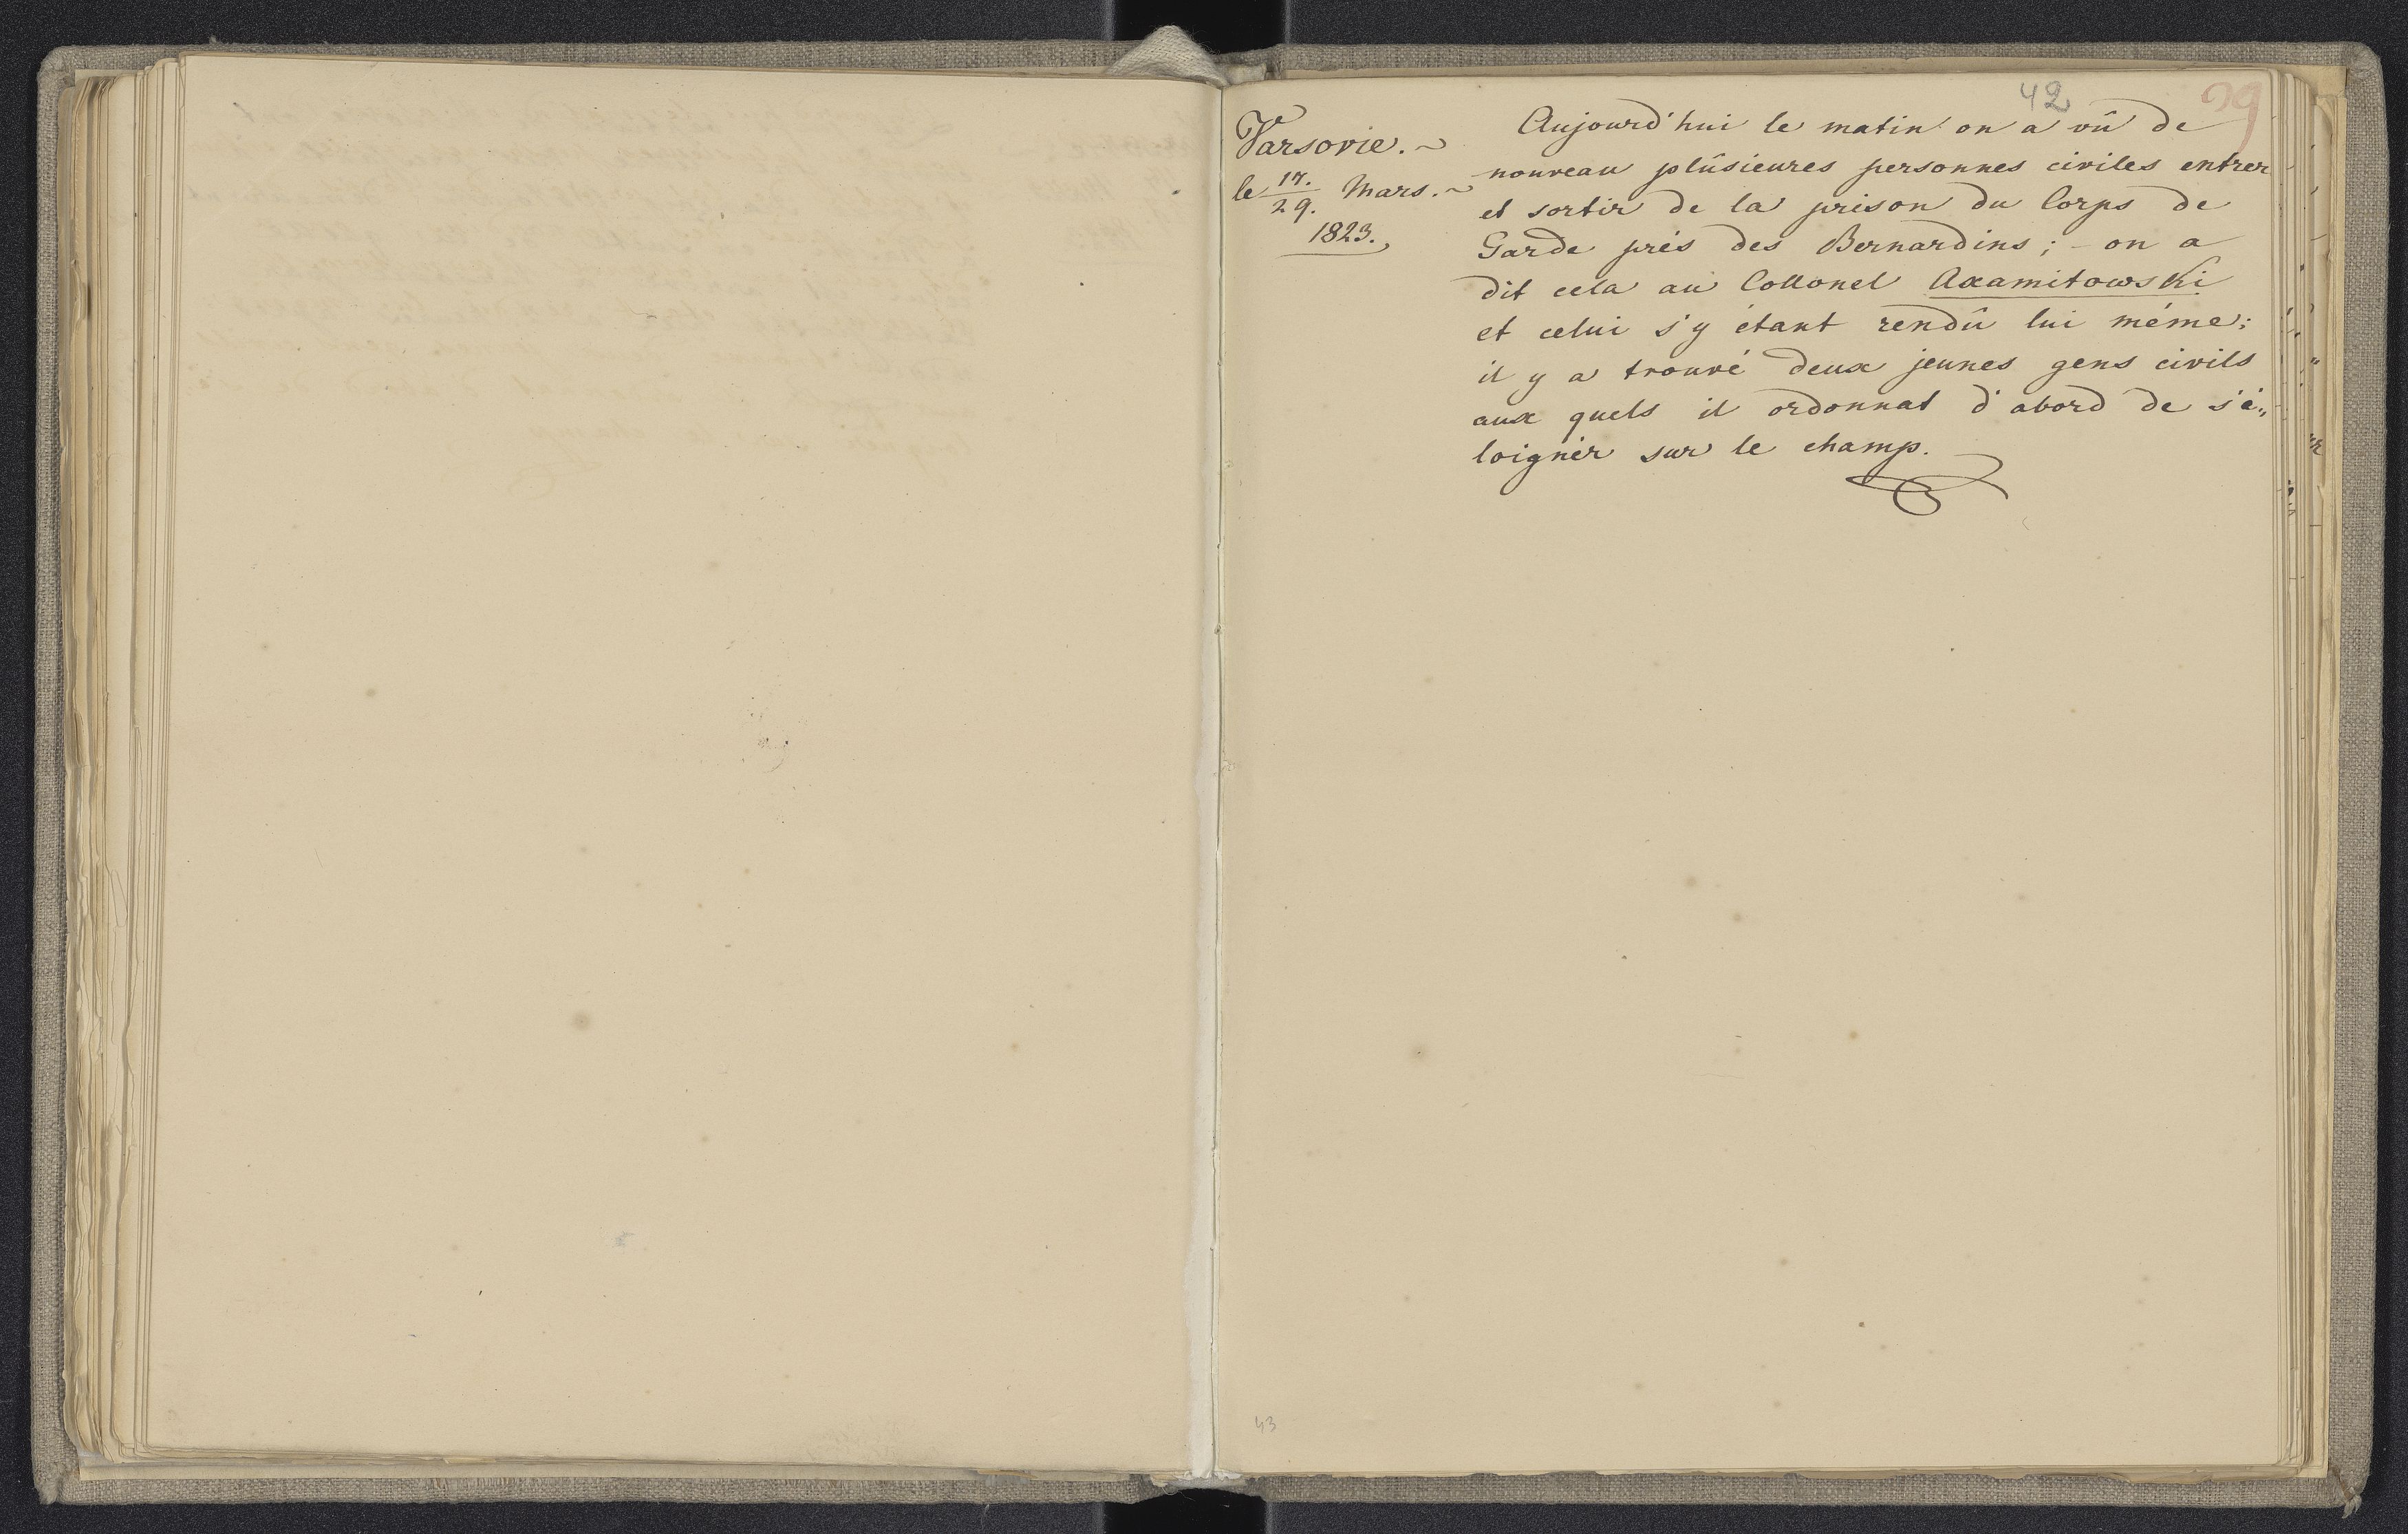 42
29
Varsovie. ~
le 17./29. Mars. ~
1823.
Aujourd'hui le matin on a vû de
nouveau plûsieures personnes civiles entrer
et sortir de la prison du Corps de
Garde prés des Bernardins; - on a
dit cela au Collonel Axamitowski
et celui s'y étant rendû lui méme;
il y a trouvé deux jeunes gens civils
aux quels il ordonnat d'abord de s'é„
loignér sur le champ.
43